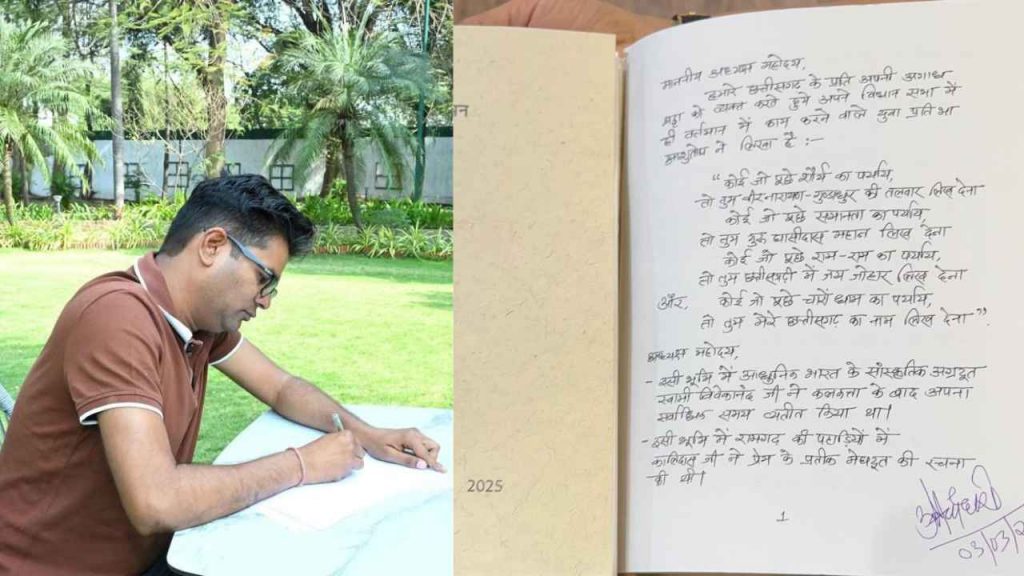 न
2025
माननीय अध्यक्ष महोदय,
हमारे छत्तीसगढ़ के प्रति अपनी अगाध
श्रद्धा को व्यक्त करते हुये अपने विधान सभा में
ही वर्तमान में काम करने वाले युवा प्रतिभा
आशुतोष ने लिखा है :-
“कोई जो पूछे शौर्य का पर्याय,
तो तुम वीरनारायण-गुण्डाधुर की तलवार लिख देना
कोई जो पूछे समानता का पर्याय,
तो तुम गुरु घासीदास महान लिख देना
कोई जो पूछे राम-राम का पर्याय,
तो तुम छत्तीसगढ़ी में जय जोहार लिख देना
और, कोई जो पूछे चारों धाम का पर्याय,
तो तुम मेरे छत्तीसगढ़ का नाम लिख देना”.
अध्यक्ष महोदय,
- इसी भूमि में आधुनिक भारत के सांस्कृतिक अग्रदूत
स्वामी विवेकानंद जी ने कलकत्ता के बाद अपना
सर्वाधिक समय व्यतीत किया था।
- इसी भूमि में रामगढ़ की पहाड़ियों में
कालिदास जी ने प्रेम के प्रतीक मेघदूत की रचना
की थी।
1
03/03/2